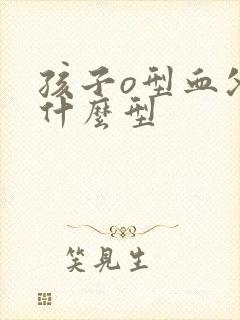 孩子o型血父
什麼型
笑見生